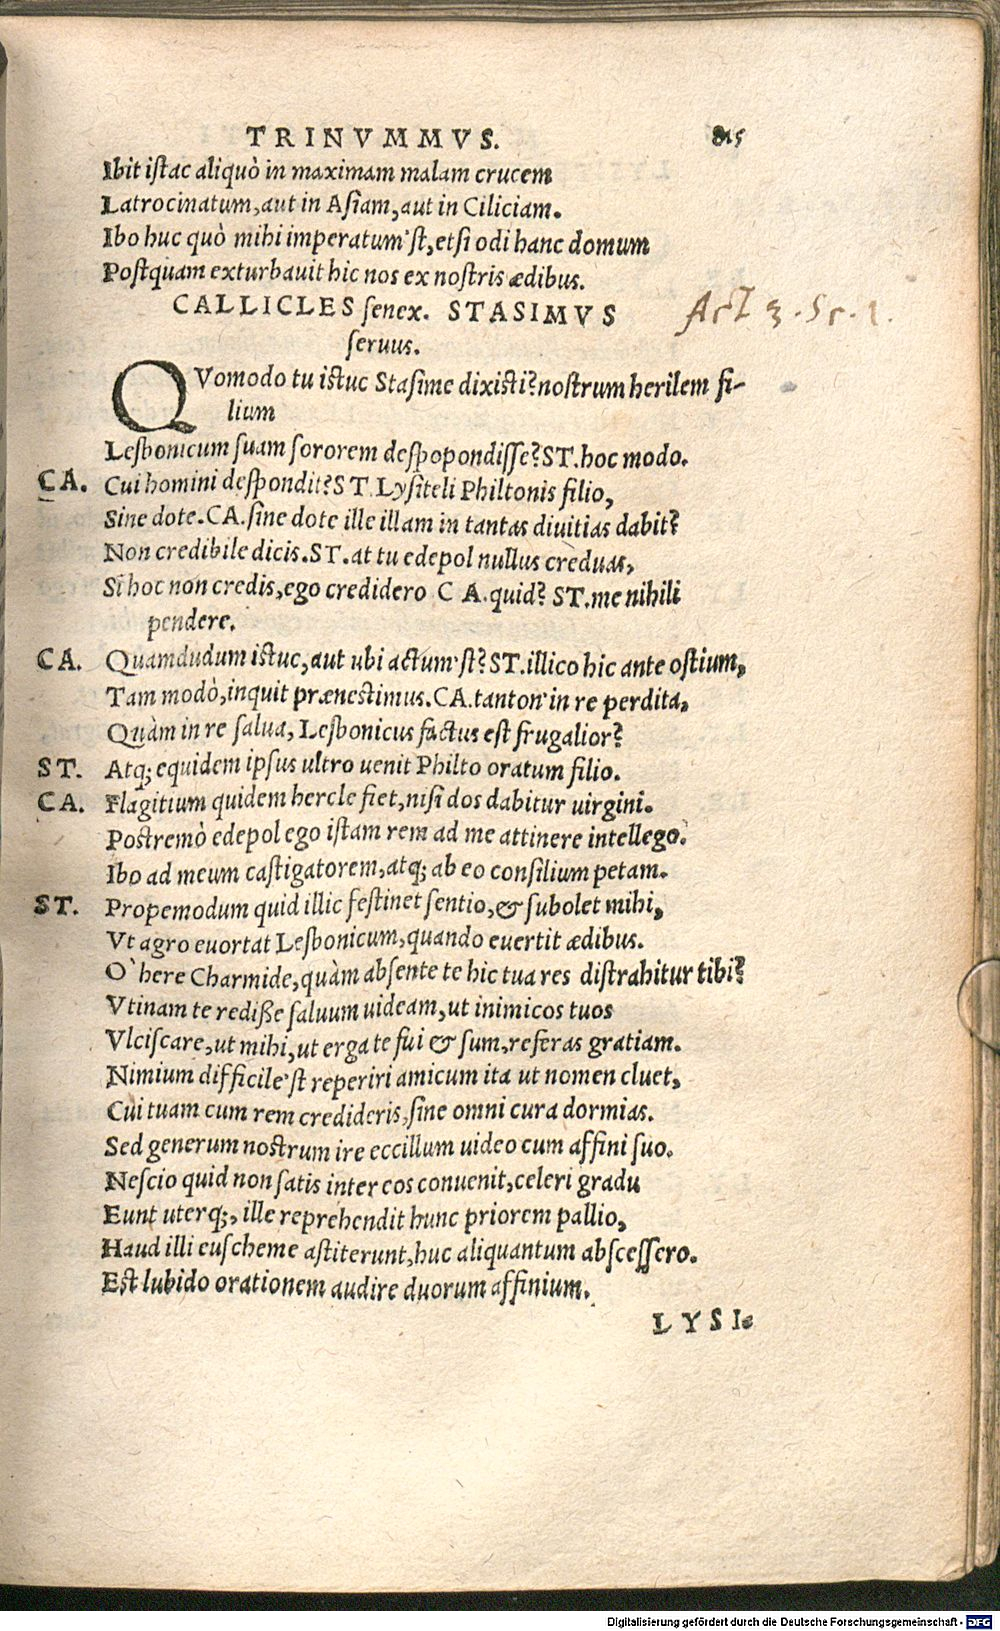 TRINVMMVS. 815
Ibit istac aliquò in maximam malam crucem
Latrocinatum, aut in Asiam, aut in Ciliciam.
Ibo huc quò mihi imperatum'st, etsi odi hanc domum
Postquam exturbauit hic nos ex nostris ædibus.
CALLICLES senex. STASIMVS
seruus.
Act 3. Sc. 1.
QVomodo tu istuc Stasime dixisti? nostrum herilem fi-
lium
Lesbonicum suam sororem despopondisse? ST. hoc modo.
CA. Cui homini despondit? ST. Lysiteli Philtonis filio,
Sine dote. CA. sine dote ille illam in tantas diuitias dabit?
Non credibile dicis. ST. at tu edepol nullus creduas,
Si hoc non credis, ego credidero CA. quid? ST. me nihili
pendere.
CA. Quamdudum istuc, aut ubi actum'st? ST. illico hic ante ostium,
Tam modò, inquit prænestimus. CA. tanton' in re perdita,
Quàm in re salua, Lesbonicus factus est frugalior?
ST. Atq; equidem ipsus ultro uenit Philto oratum filio.
CA. Flagitium quidem hercle fiet, nisi dos dabitur uirgini.
Postremò edepol ego istam rem ad me attinere intellego.
Ibo ad meum castigatorem, atq; ab eo consilium petam.
ST. Propemodum quid illic festinet sentio, & subolet mihi,
Vt agro euortat Lesbonicum, quando euertit ædibus.
O' here Charmide, quàm absente te hic tua res distrahitur tibi?
Vtinam te redisse saluum uideam, ut inimicos tuos
Vlciscare, ut mihi, ut erga te fui & sum, referas gratiam.
Nimium difficile'st reperiri amicum ita ut nomen cluet,
Cui tuam cum rem credideris, sine omni cura dormias.
Sed generum nostrum ire eccillum uideo cum affini suo.
Nescio quid non satis inter eos conuenit, celeri gradu
Eunt uterq;, ille reprehendit hunc priorem pallio,
Haud illi euscheme astiterunt, huc aliquantum abscessero.
Est lubido orationem audire duorum affinium.
LYSI-
Digitalisierung gefördert durch die Deutsche Forschungsgemeinschaft - DFG